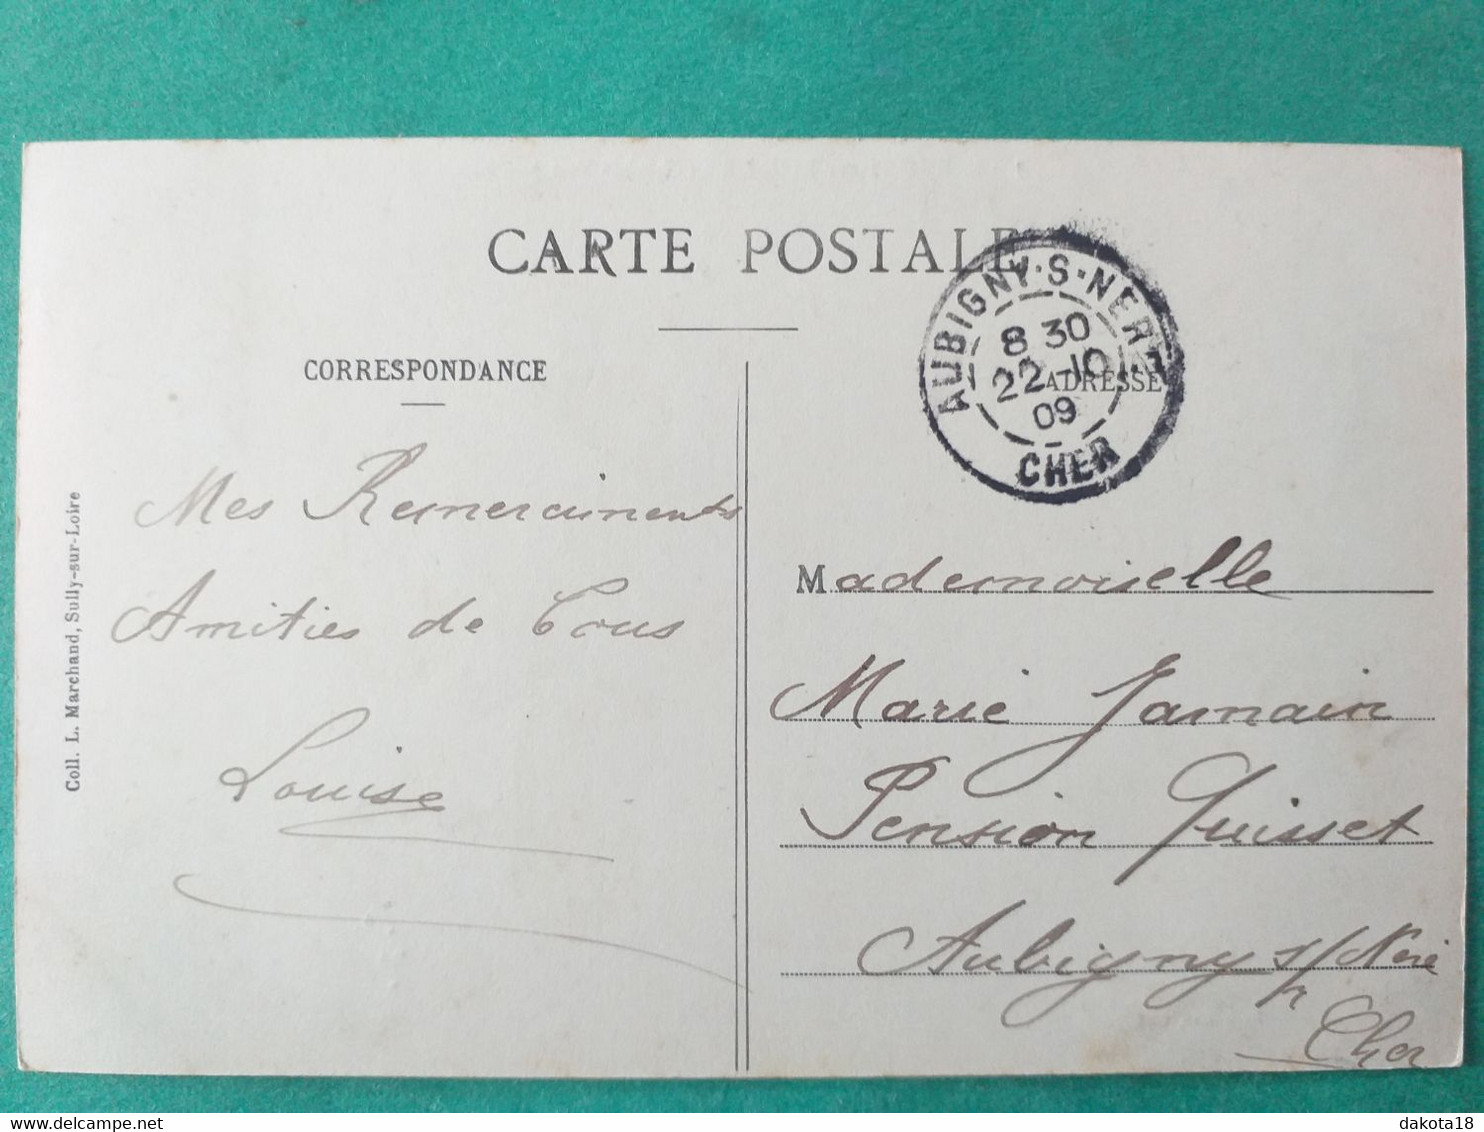 CARTE POSTALE
AUBIGNY-S-NERE
8 30
22 -10
09
CHER
CORRESPONDANCE
ADRESSE
Mes Remerciments
Amitiés de Tous
Louise
Coll. L. Marchand, Sully-sur-Loire
Mademoiselle
Marie Jamain
Pension Quisset
Aubigny s/ Nère
Cher
dakota18